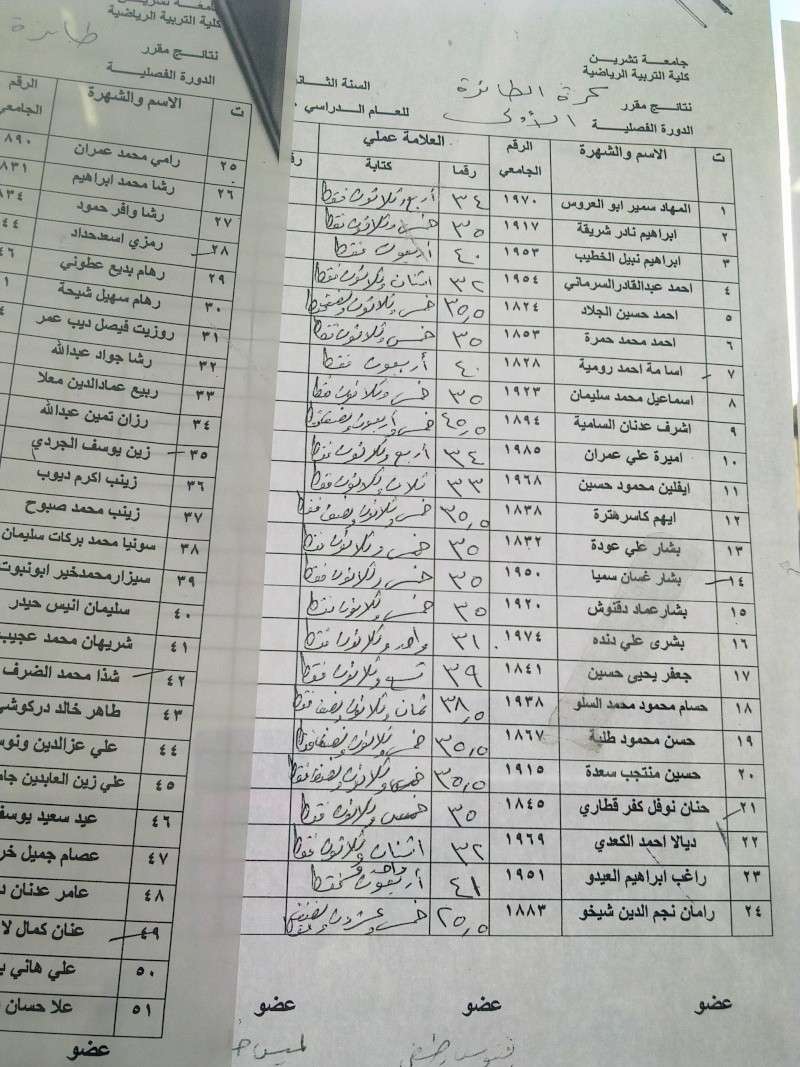 جامعة تشرين
كلية التربية الرياضية
نتائج مقرر كرة الطائرة السنة الثانـ
الدورة الفصلية الأولى للعام الدراسي
ت الاسم والشهرة الرقم الجامعي العلامة عملي
رقما كتابة
١ المهاد سمير ابو العروس ١٩٧٠ ٣٤ أربع وثلاثون فقط
٢ ابراهيم نادر شريقة ١٩١٧ ٣٥ خمس وثلاثون فقط
٣ ابراهيم نبيل الخطيب ١٩٥٣ ٤٠ أربعون فقط
٤ احمد عبدالقادرالسرماني ١٩٥٤ ٣٢ اثنان وثلاثون فقط
٥ احمد حسين الجلاد ١٨٢٤ ٣٥,٥ خمس وثلاثون ونصف فقط
٦ احمد محمد حمرة ١٨٥٣ ٣٥ خمس وثلاثون فقط
٧ اسامة احمد رومية ١٨٢٨ ٤٠ أربعون فقط
٨ اسماعيل محمد سليمان ١٩٢٣ ٣٥ خمس وثلاثون فقط
٩ اشرف عدنان السامية ١٨٩٤ ٤٥,٥ خمس وأربعون ونصف فقط
١٠ اميرة علي عمران ١٩٨٥ ٣٤ أربع وثلاثون فقط
١١ ايفلين محمود حسين ١٩٦٨ ٣٣ ثلاث وثلاثون فقط
١٢ ايهم كاسرهترة ١٨٣٨ ٣٥,٥ خمس وثلاثون ونصف فقط
١٣ بشار علي عودة ١٨٣٢ ٣٥ خمس وثلاثون فقط
١٤ بشار غسان سميا ١٩٥٠ ٣٥ خمس وثلاثون فقط
١٥ بشارعماد دقنوش ١٩٢٠ ٣٥ خمس وثلاثون فقط
١٦ بشرى علي دنده ١٩٧٤ ٣١ واحد وثلاثون فقط
١٧ جعفر يحيى حسين ١٨٤١ ٣٩ تسع وثلاثون فقط
١٨ حسام محمود محمد السلو ١٩٣٨ ٣٨,٥ ثمان وثلاثون ونصف فقط
١٩ حسن محمود طلبة ١٨٦٧ ٣٥,٥ خمس وثلاثون ونصف فقط
٢٠ حسين منتجب سعدة ١٩١٥ ٣٥,٥ خمس وثلاثون ونصف فقط
٢١ حنان نوفل كفر قطاري ١٨٤٥ ٣٥ خمس وثلاثون فقط
٢٢ ديالا احمد الكعدي ١٩٦٩ ٣٢ اثنان وثلاثون فقط
٢٣ راغب ابراهيم العيدو ١٩٥١ ٤١ واحد وأربعون فقط
٢٤ رامان نجم الدين شيخو ١٨٨٣ ٢٥,٥ خمس وعشرون ونصف
عضو عضو عضو
جامعة تشرين
كلية التربية الرياضية
نتائج مقرر طائرة
الدورة الفصلية
ت الاسم والشهرة الرقم الجامعي
٢٥ رامي محمد عمران ٨٩٠
٢٦ رشا محمد ابراهيم ٨٣١
٢٧ رشا وافر حمود ٨٣٤
٢٨ رمزي اسعدحداد ٤٤
٢٩ رهام بديع عطوني ٤٦
٣٠ رهام سهيل شيحة ١
٣١ روزيت فيصل ديب عمر
٣٢ رشا جواد عبدالله
٣٣ ربيع عمادالدين معلا
٣٤ رزان تمين عبدالله
٣٥ زين يوسف الجردي
٣٦ زينب اكرم ديوب
٣٧ زينب محمد صبوح
٣٨ سونيا محمد بركات سليمان
٣٩ سيزارمحمدخير ابونبوت
٤٠ سليمان انيس حيدر
٤١ شريهان محمد عجيب
٤٢ شذا محمد الضرف
٤٣ طاهر خالد دركوشي
٤٤ علي عزالدين ونوس
٤٥ علي زين العابدين جا
٤٦ عيد سعيد يوسف
٤٧ عصام جميل خر
٤٨ عامر عدنان د
٤٩ عنان كمال لا
٥٠ علي هاني ب
٥١ علا حسان
عضو